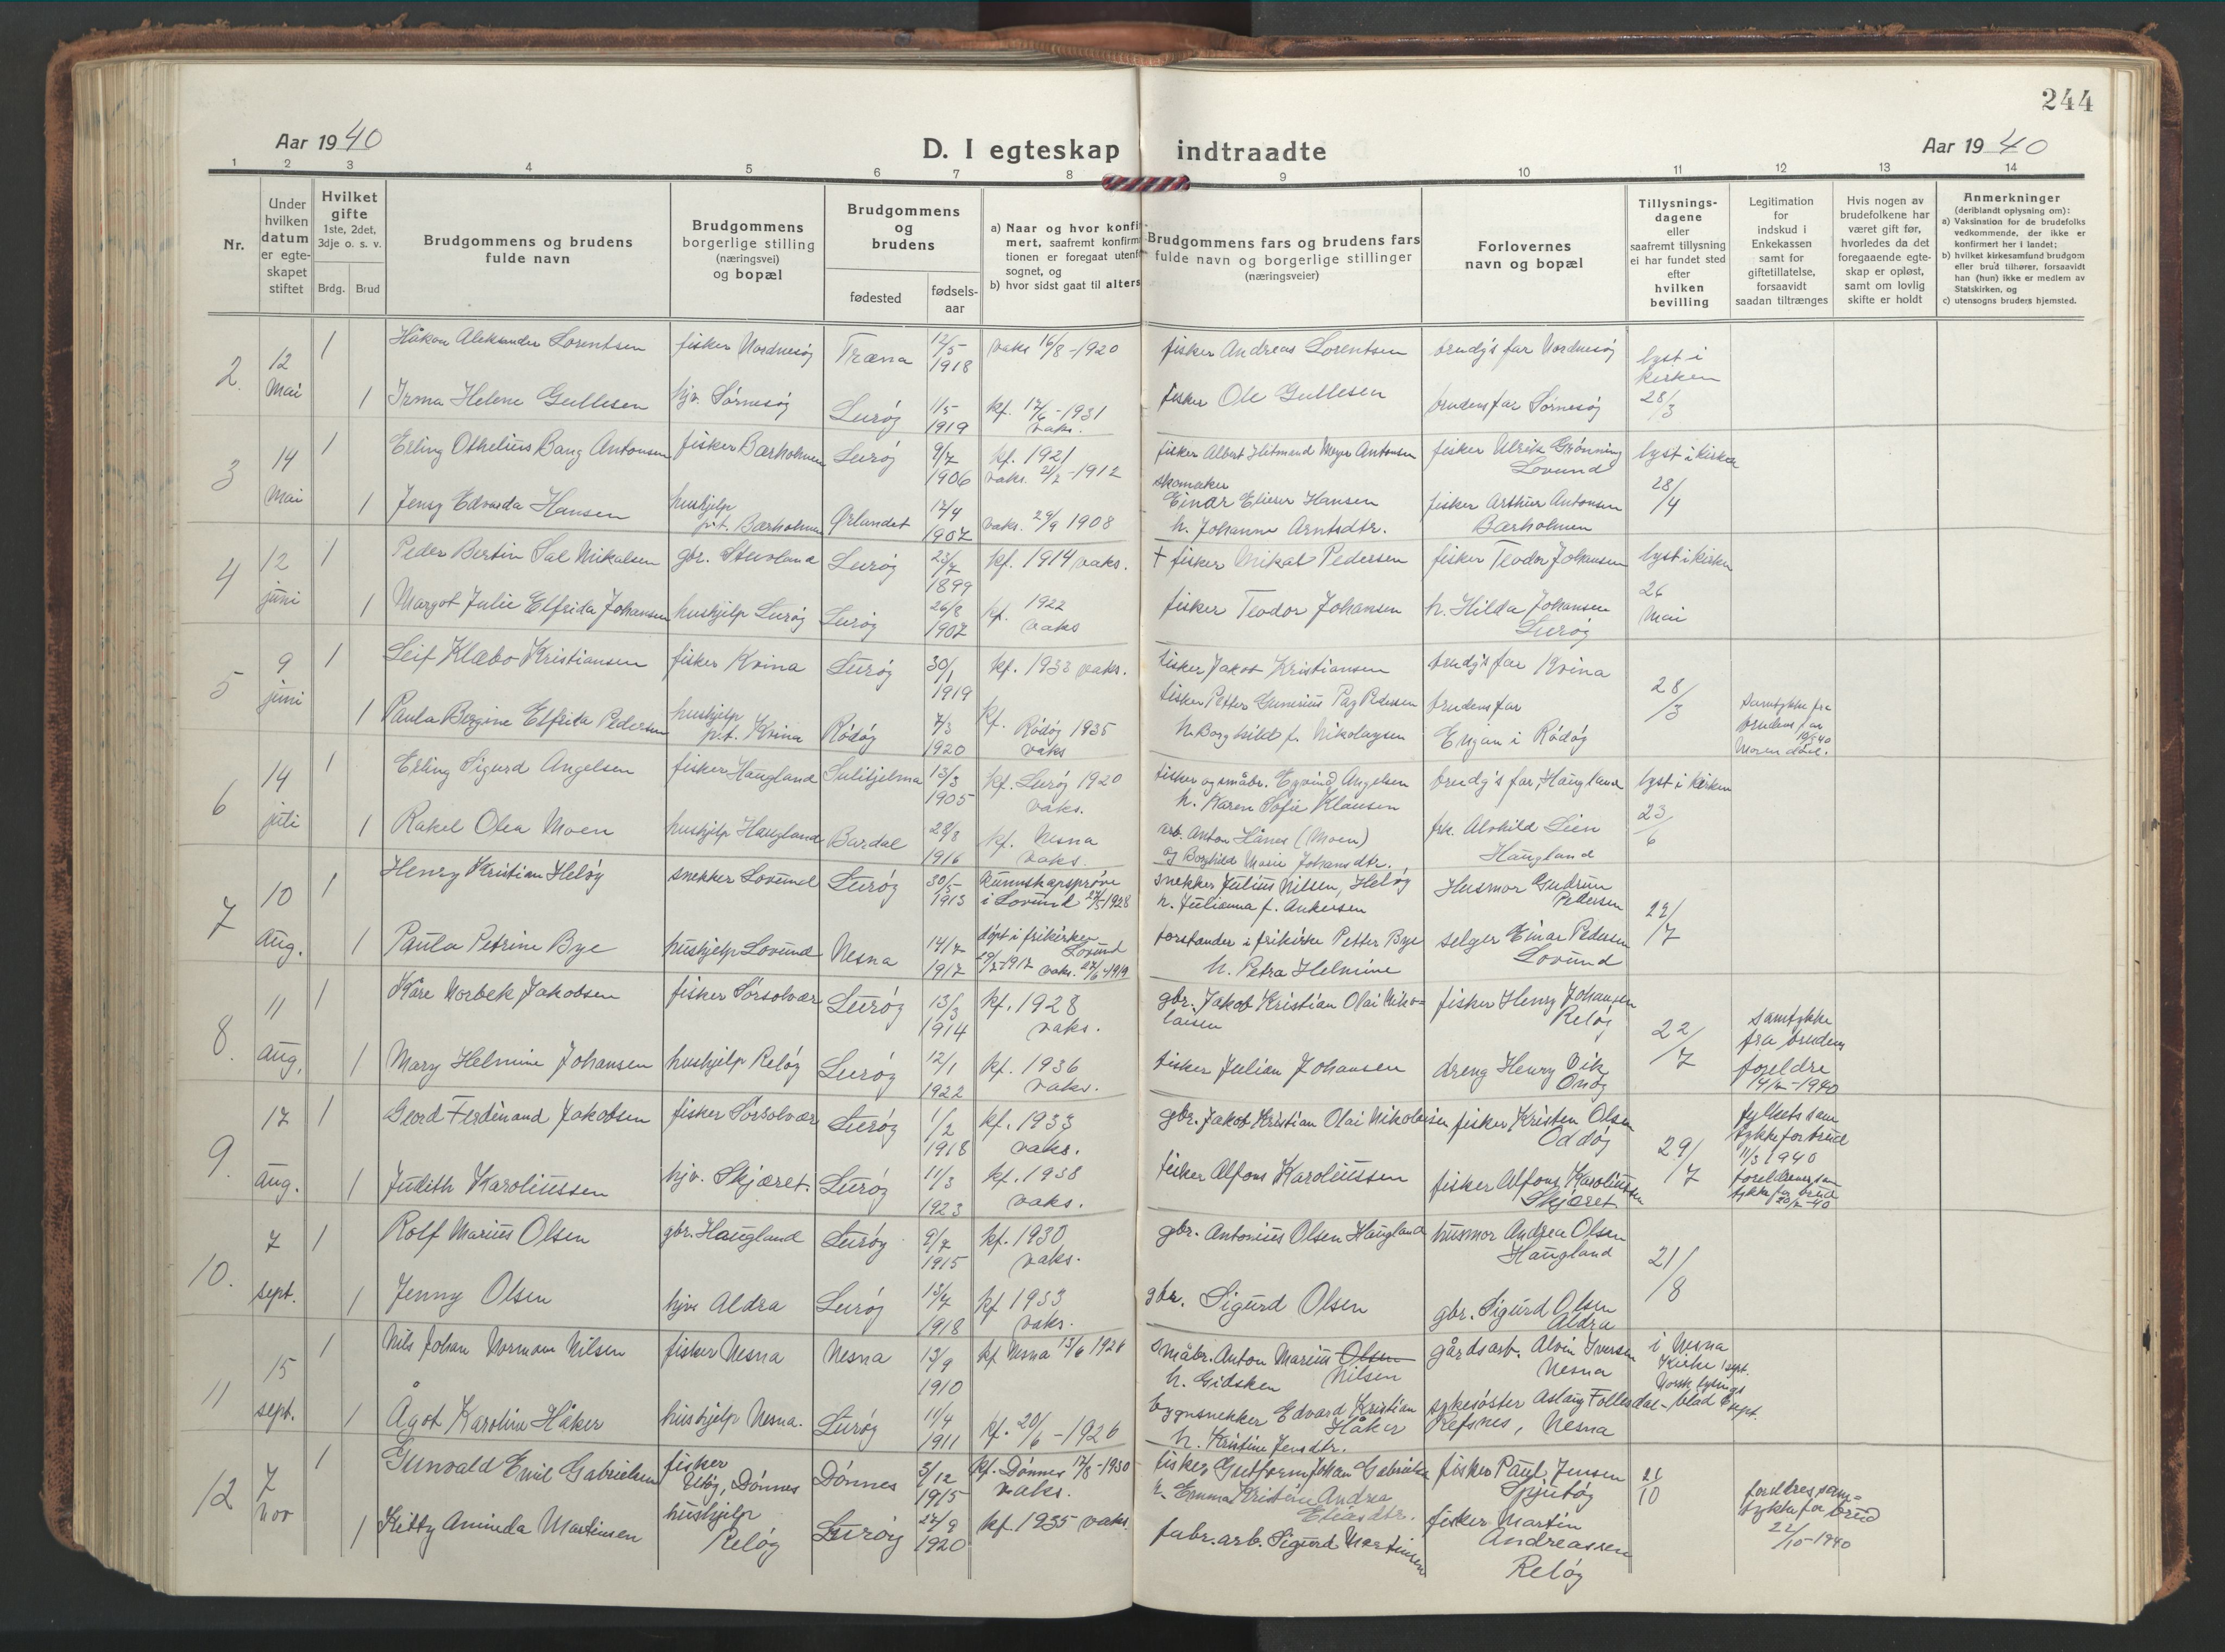 244
Aar 1940
D. I egteskap indtraadte
Aar 1940
1 2 3 4 5 6 7 8 9 10 11 12 13 14
Nr.
Under hvilken datum er egte-skapet stiftet
Hvilket gifte 1ste, 2det, 3dje o. s. v.
Brdg. Brud
Brudgommens og brudens fulde navn
Brudgommens borgerlige stilling (næringsvei) og bopæl
Brudgommens og brudens
fødested
fødsels-aar
a) Naar og hvor konfir
mert, saafremt konfirm
tionen er foregaat utenf
sognet, og
b) hvor sidst gaat til alters
Brudgommens fars og brudens fars fulde navn og borgerlige stillinger (næringsveier)
Forlovernes navn og bopæl
Tillysnings-dagene eller saafremt tillysning ei har fundet sted efter hvilken bevilling
Legitimation for indskud i Enkekassen samt for giftetillatelse, forsaavidt saadan tiltrænges
Hvis nogen av brudefolkene har været gift før, hvorledes da det foregaaende egte-skap er opløst, samt om lovlig skifte er holdt
Anmerkninger
(deriblandt oplysning om):
a) Vaksination for de brudefolks vedkommende, der ikke er konfirmert her i landet;
b) hvilket kirkesamfund brudgom eller brud tilhører, forsaavidt han (hun) ikke er medlem av Statskirken, og
c) utensogns bruders hjemsted.
2. 12 Mai 1 Håkon Aleksander Lorentsen fisker Nordnesøy Træna 12/5 1918 vaks 16/8-1920 fisker Andreas Lorentsen brudg's far Nordnesøy lyst i kirken 28/3
1 Irma Helene Gullesen hjv. Sørnesøy Lurøy 1/5 1919 kf. 1931 vaks. fisker Ole Gullesen brudens far Sørnesøy
3 14 Mai 1 Erling Othelius Bang Antonsen fisker Barholmen Lurøy 9/7 1906 kf. 1921 vaks. 1912 fisker Albert Meyer Antonsen fisker Ulrik Grønning Lovund lyst i kirken 28/4
1 Jensy Edvarda Hansen hushjelp p.t. Barholmen Ørlandet 17/4 1907 vaks. 29/9 1908 skomaker Einar Elieser Hansen h. Johanne Arntsdtr. fisker Arthur Antonsen Barholmen
4 12 juni 1 Peder Bertin Sal Mikalsen gbr. Stuvland Lurøy 23/7 1899 kf. 1914 vaks. + fisker Mikal Pedersen fisker Teodor Johansen lyst i kirken 26 Mai
1 Margot Julie Elfrida Johansen hushjelp Lurøy Lurøy 26/8 1907 kf. 1922 vaks fisker Teodor Johansen h. Hilda Johansen Lurøy
5 9 juni 1 Leif Klæbo Kristiansen fisker Kvina Lurøy 30/1 1919 kf. 1933 vaks. fisker Jakob Kristiansen brudg's far Kvina 28/3
1 Paula Bergine Elfrida Pedersen hushjelp p.t. Kvina Rødøy 7/3 1920 kf. Rødøy 1935 vaks fisker Petter Gunerius Pedersen h. Borghild f. Nikolaysen brudens far Engan i Rødøy Samtykke fra brudens far Moren død.
6 14 juli 1 Erling Sigurd Angelsen fisker Haugland Sulitjelma 13/3 1905 kf. Lurøy 1920 vaks. fisker og småbr. Eyvind Angelsen h. Karen Sofie Klausen brudg's far, Haugland lyst i kirken 23/6
1 Rakel Olea Moen hushjelp Haugland Bardal 28/8 1916 kf. Nesna vaks. arb. Anton Hånes (Moen) og Borghild Marie Johansdtr. frk. Alvhild Lien Haugland
7 10 aug. 1 Henry Kristian Heløy snekker Lovund Lurøy 30/5 1913 kunnskapsprøve i Lovund 1928 snekker Julius Nilsen, Heløy h. Julianna f. Ankersen Husmor Gudrun Pedersen 22/7
1 Paula Petrine Bye hushjelp Lovund Nesna 14/7 1917 døpt i frikirken Lovund 1917 vaks. 1919 forstander i frikirke Petter Bye h. Petra Helmine selger Einar Pedersen Lovund
8. 11 aug. 1 Kåre Norbek Jakobsen fisker Sørsolvær Lurøy 13/3 1914 kf. 1928 vaks. gbr. Jakob Kristian Olai Niko-laisen fisker Henry Johansen Reløy 22/7 samtykke fra brudens foreldre 14/7-1940
1 Mary Helmine Johansen hushjelp Reløy Lurøy 12/1 1922 kf. 1936 vaks. fisker Julian Johansen dreng Henry Vik Onøy
9. 17 aug. 1 Geord Ferdinand Jakobsen fisker Sørsolvær Lurøy 1/2 1918 kf. 1933 vaks. gbr. Jakob Kristian Olai Nikolaisen fisker Kristen Olsen Oddøy 29/7 fylkets sam tykke for brud 11/3 1940
1 Judith Karoliussen hjv. Skjæret. Lurøy 11/3 1923 kf. 1938 vaks. fisker Alfons Karoliussen fisker Alfons Karoliussen Skjæret foreldrenes sam tykke for brud
10. 7 sept. 1 Rolf Marius Olsen gbr. Haugland Lurøy 9/7 1915 kf. 1930 vaks. gbr. Antonius Olsen Haugland husmor Andrea Olsen Haugland 21/8
1 Jenny Olsen hjv. Aldra Lurøy 13/7 1918 kf 1933 vaks. gbr. Sigurd Olsen gbr. Sigurd Olsen Aldra
11 15 sept. 1 Nils Johan Normann Nilsen fisker Nesna Nesna 13/9 1910 kf Nesna 13/6 småbr. Anton Marius Olsen Nilsen h. Gidsken gårdsarb. Alvin Iversen Nesna i Nesna Kirke 1 sept. Norsk lysings blad sept.
1 Ågot Karoline Håker hushjelp Nesna. Lurøy 11/4 1911 kf. 20/6-1926 bygnsnekker Edvard Kristian Håker h. Kristine Jensdtr. sykesøster Aslaug Follesdal Refsnes, Nesna
12 7 nov 1 Gunvald Emil Gabrielsen fisker Dønnes Dønnes 3/12 1915 kf. Dønnes 17/8-1930 vaks. fisker Johan Gabrielsen h. Emma Kristine Andrea Eliasdtr. fisker Paul Jensen Spjutøy 21/10 foreldres sam= tykke for brud 22/10-1940
1 Kitty Aminda Martinsen hushjelp Reløy Lurøy 27/9 1920 kf. 1935 vaks. fabr.arb. Sigurd Martinsen fisker Martin Andreassen Reløy